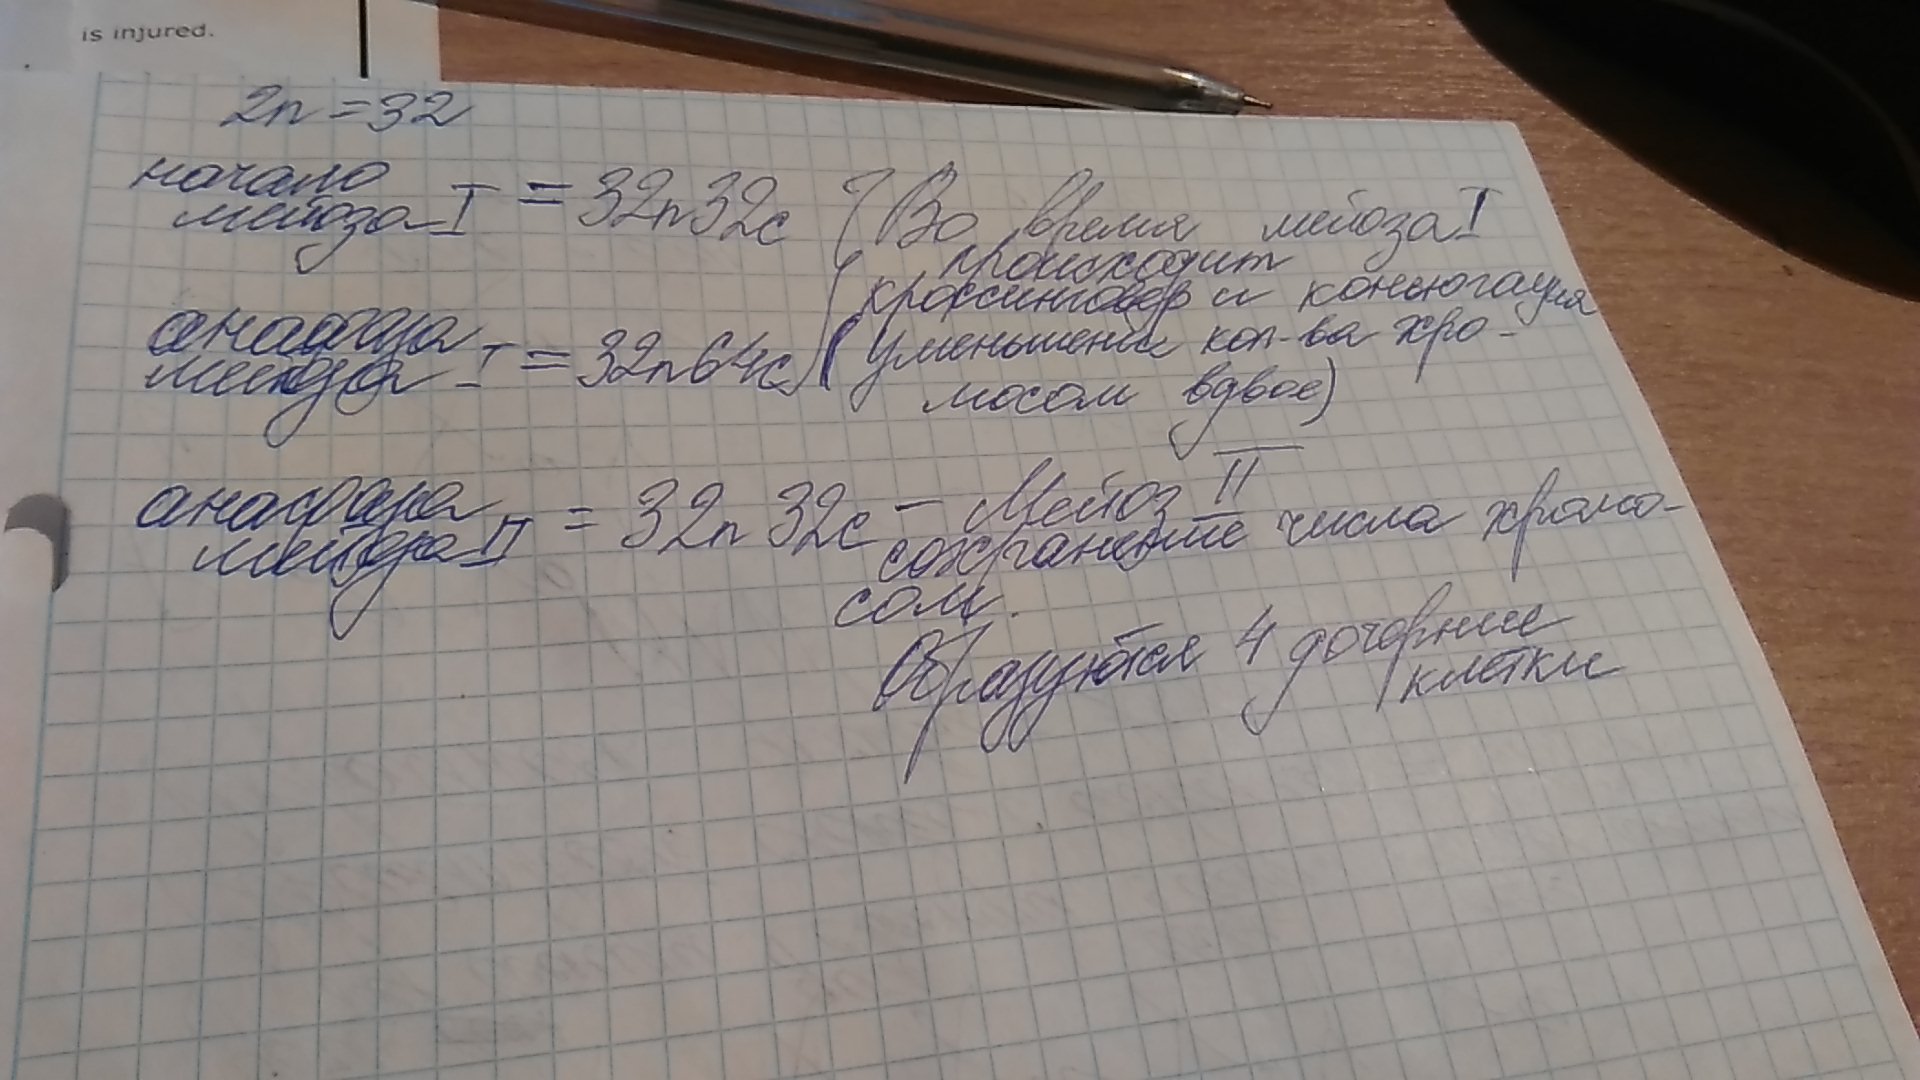 is injured.
2n = 32
начало
мейоза I = 32n32c (Во время мейоза I
происходит
кроссинговер и конъюгация
анафаза
мейоза I = 32n64c уменьшение кол-ва хро-
мосом вдвое)
анафаза
мейоза II = 32n 32c – Мейоз II
сохранение числа хромо-
сом.
Образуются 4 дочерние
клетки